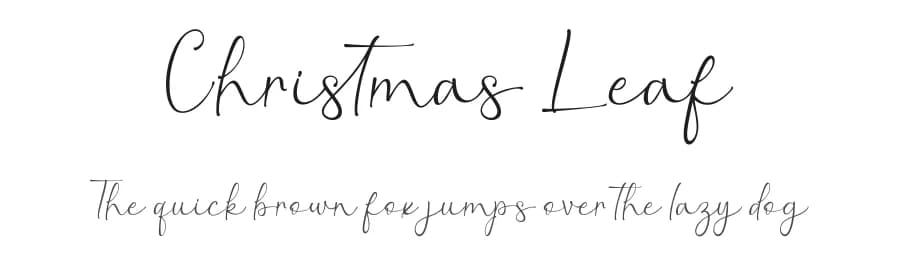 Christmas Leaf
The quick brown fox jumps over the lazy dog